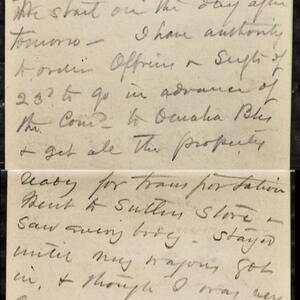 We start on the day after
tomorrow – I have authority
to order Officers & Sergts of
23d to go in advance of
the Comd to Omaha Bks
& get all the property
ready for transportation
Went to Sutlers Store &
saw everybody. Stayed
until my wagons got
in, & though I was